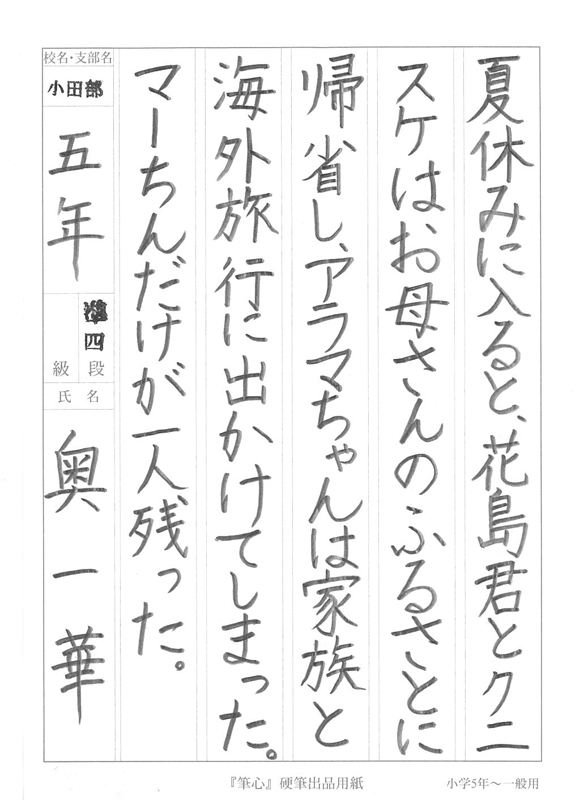 夏休みに入ると、花島君とクニ
スケはお母さんのふるさとに
帰省し、アラマちゃんは家族と
海外旅行に出かけてしまった。
マーちんだけが一人、残った。
校名・支部名
小田部
五年
準四
段
級
氏名
奥一華
『筆心』硬筆出品用紙
小学5年〜一般用